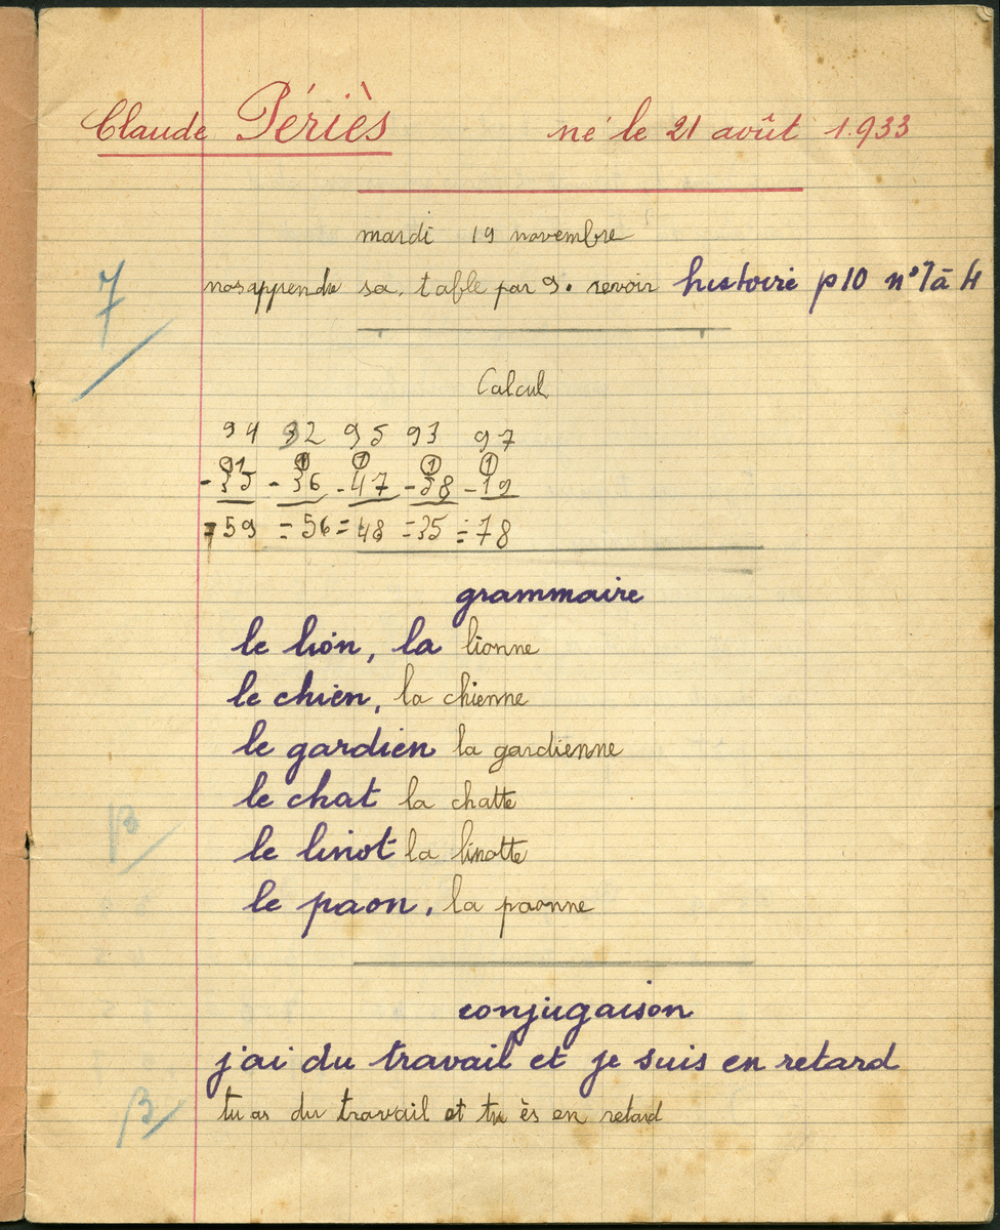 Claude Périès né le 21 août 1.933
mardi 19 novembre
7
apprendre sa table par 9. revoir histoire p10 n° 1 à 4
Calcul
94 92 95 93 97
- 35 - 36 - 47 - 58 - 19
= 59 = 56 = 48 = 35 = 78
grammaire
le lion, la lionne
le chien, la chienne
le gardien la gardienne
le chat la chatte
le linot la linotte
le paon, la paonne
conjugaison
j'ai du travail et je suis en retard
tu as du travail et tu ès en retard